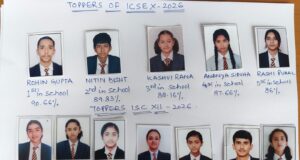 TOPPERS OF ICSE X-2026
ROHIN GUPTA NITIN BISHT KASHVI RANA SINGHA RASHI
1st in school 2nd in school 3rd in school 4th in school 5th in school
90.66% 89.83% 88.16% 87.66% 86%
TOPPERS ISC XII-2026